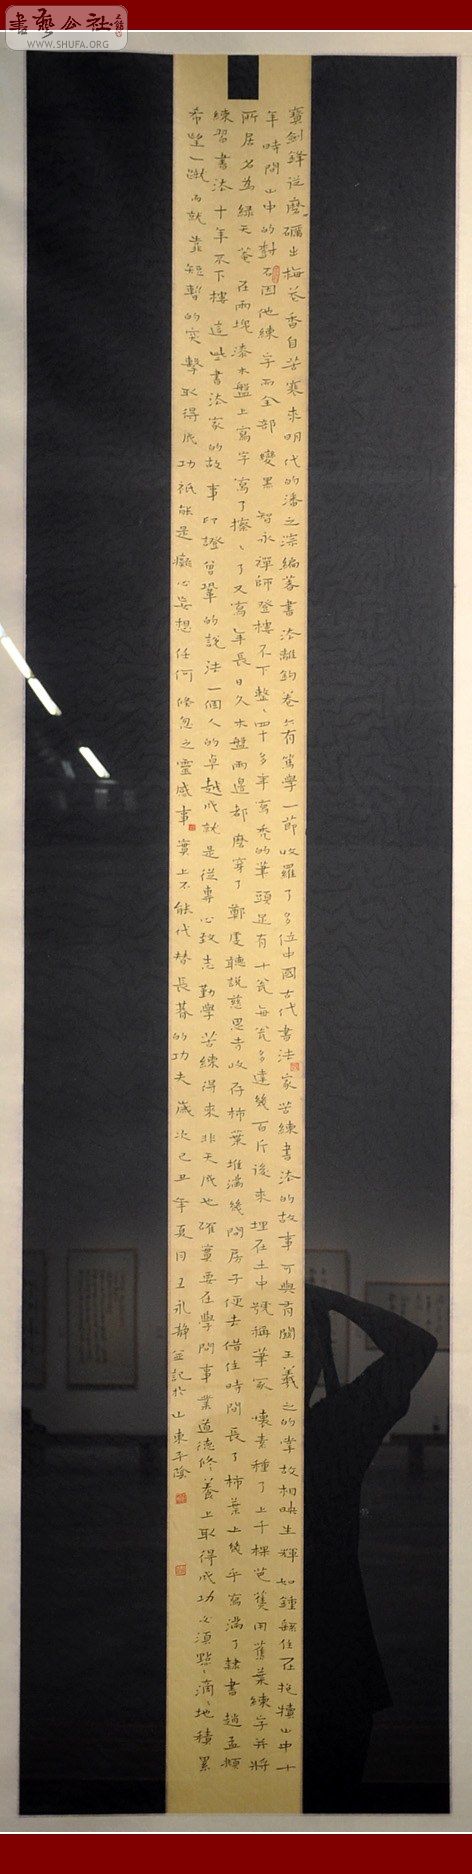 書藝公社
WWW.SHUFA.ORG
寶劍鋒從磨礪出梅花香自苦寒來明代的潘之淙編著書法離鉤卷六有篤學一節收羅了多位中國古代書法家苦練書法的故事可與有關王羲之的掌故相映生輝如鍾繇住在抱犢山中十
年時間山中的對石因他練字而全部變黑智永禪師登樓不下整整四十多年寫禿的筆頭足有十瓮每瓮多達幾百斤後來埋在土中號稱筆冢懷素種了上千棵芭蕉用蕉葉練字并將
所居名為綠天菴在兩塊漆木盤上寫字寫了擦擦了又寫年長日久木盤兩邊都磨穿了鄭虔聽說慈恩寺收存柿葉堆滿幾間房子便去借住時間長了柿葉上幾乎寫滿了隸書趙孟頫
練習書法十年不下樓這些書法家的故事印證曾鞏的說法一個人的卓越成就是從專心致志勤學苦練得來非天成也確實要在學問事業道德修養上取得成功必須點點滴滴地積累
希望一蹴而就靠短暫的突擊取得成功祇能是癡心妄想任何倏忽之靈感事實上不能代替長暮的功夫歲次己丑年夏月王永靜並記於山東平陰